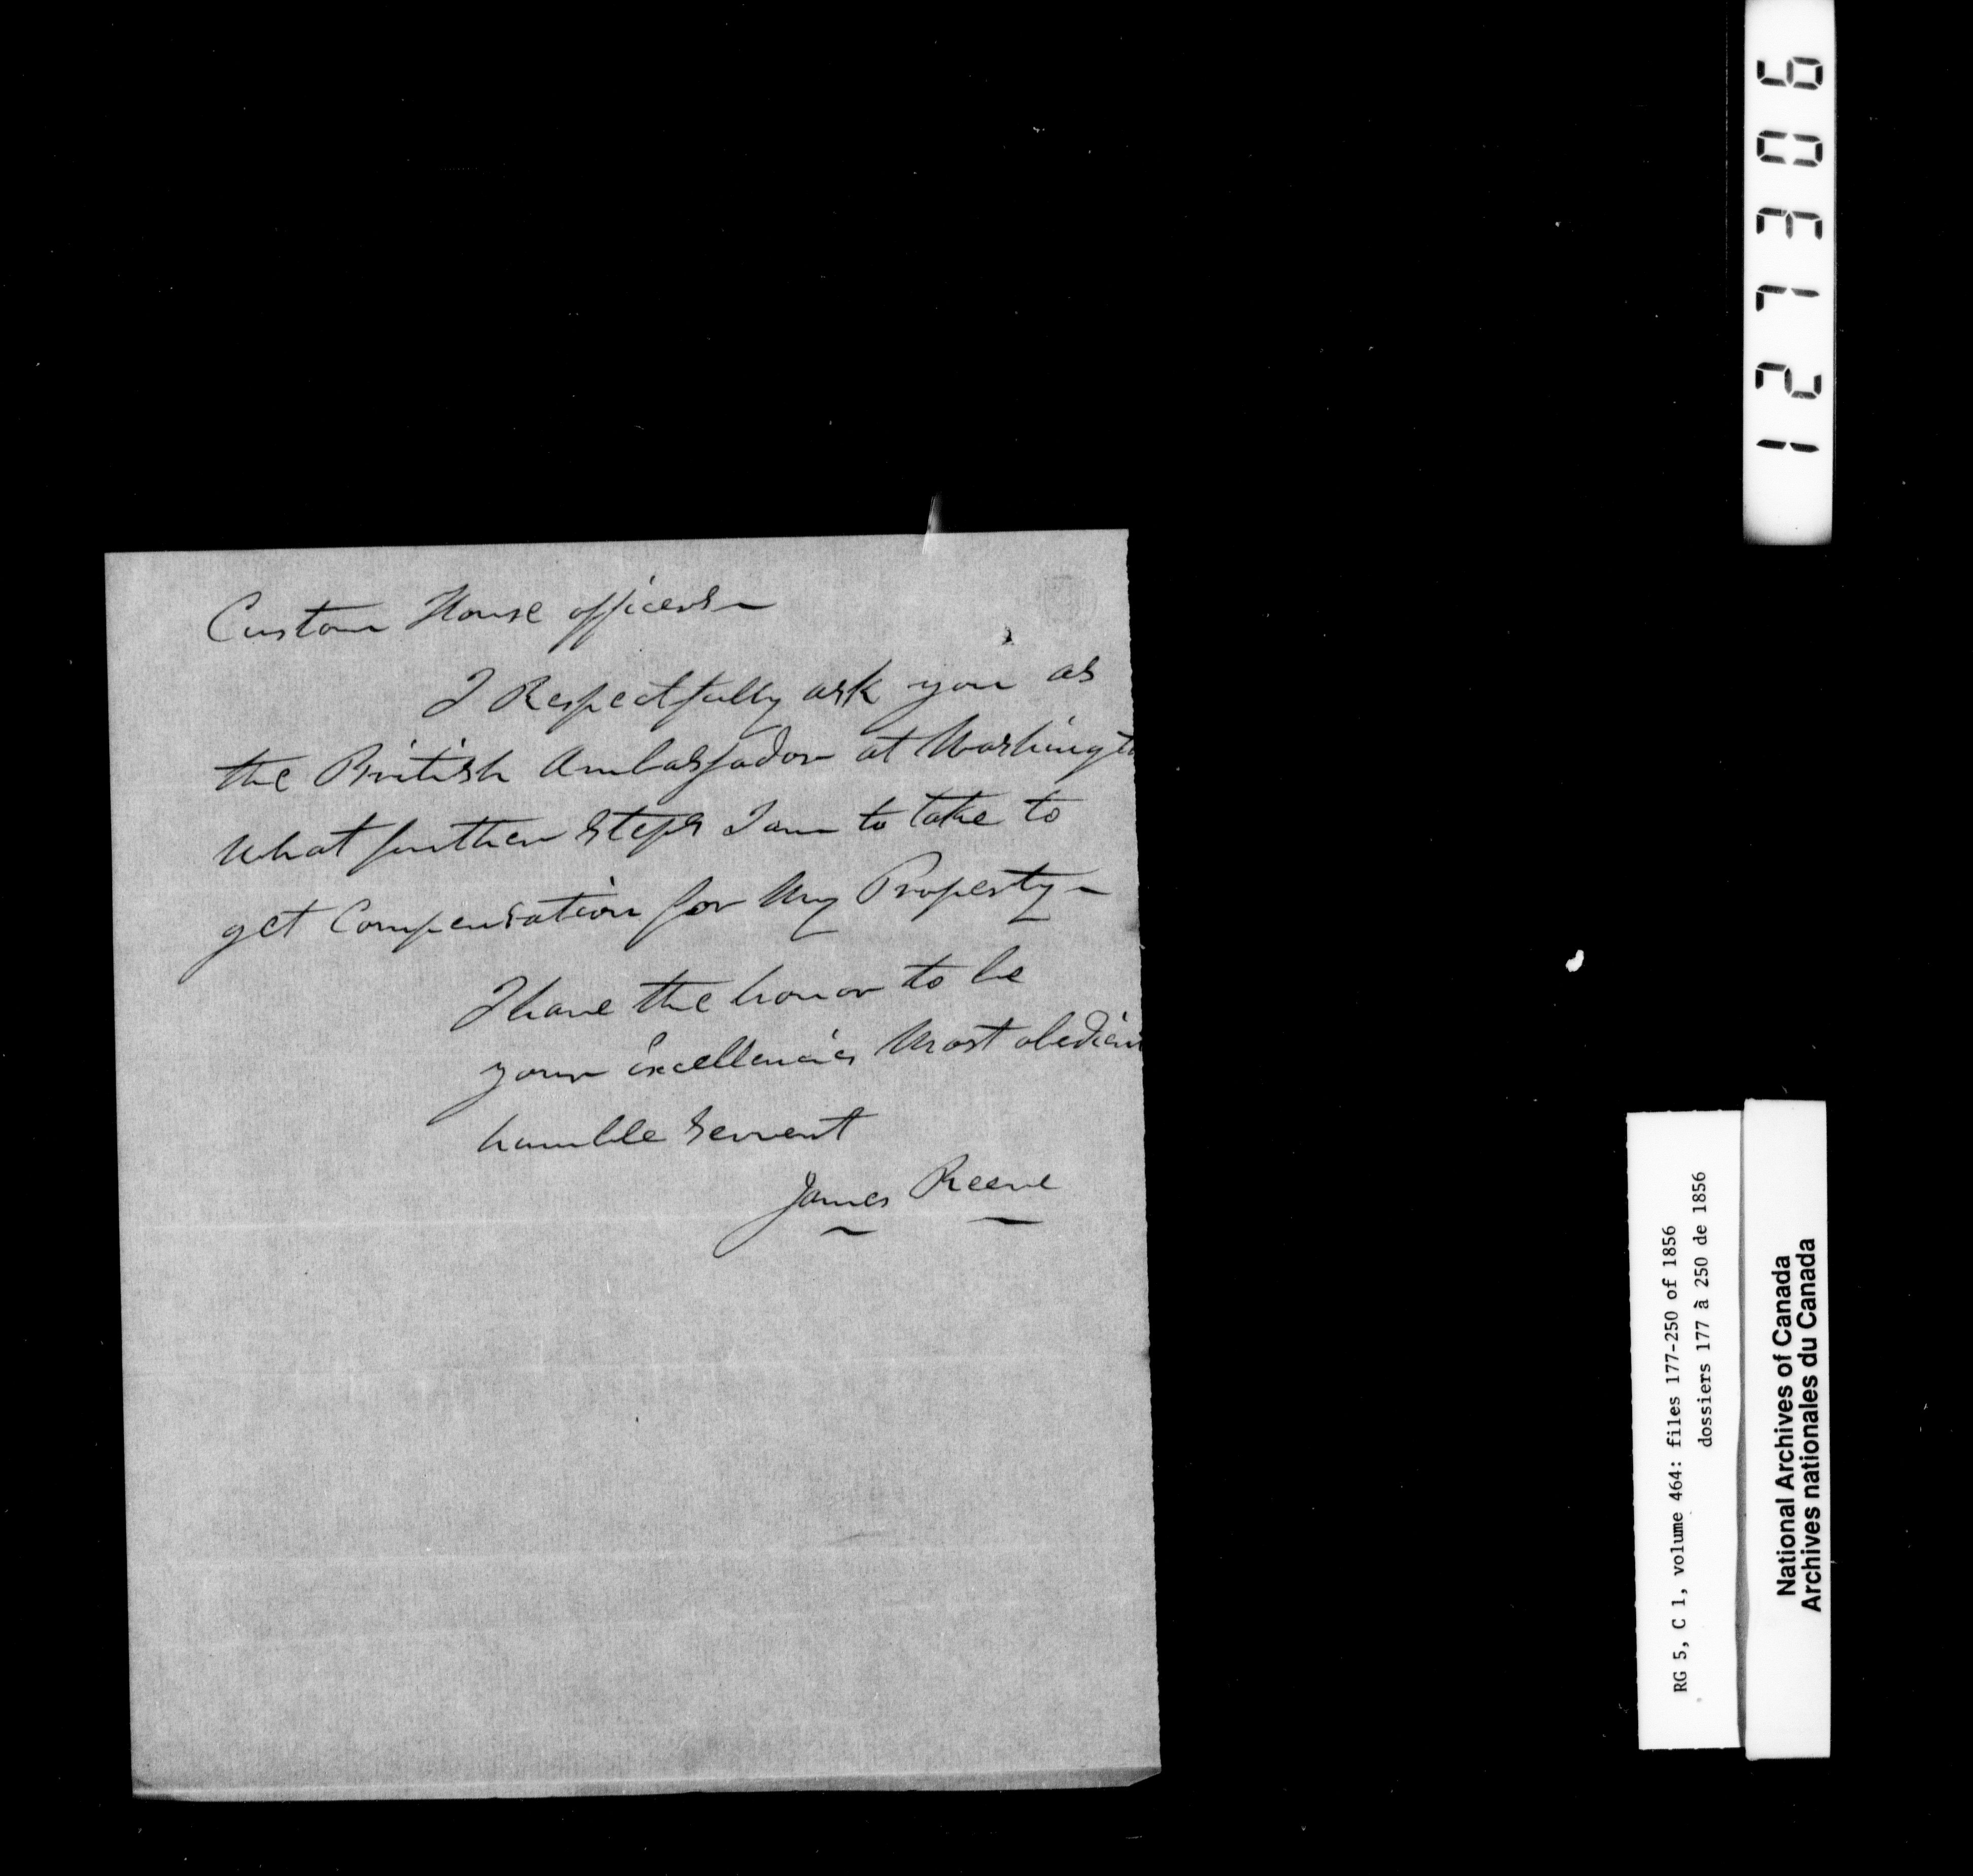 Custom House officers
I Respectfully ask you as
the British Ambassador at Washingto
What further Steps I am to take to
get Compensation for My Property
I have the honor to be
your excellencies Most obedien
humble Servent
James Reeve
127306
RG 5, C 1, volume 464: files 177-250 of 1856
dossiers 177 à 250 de 1856
National Archives of Canada
Archives nationales du Canada